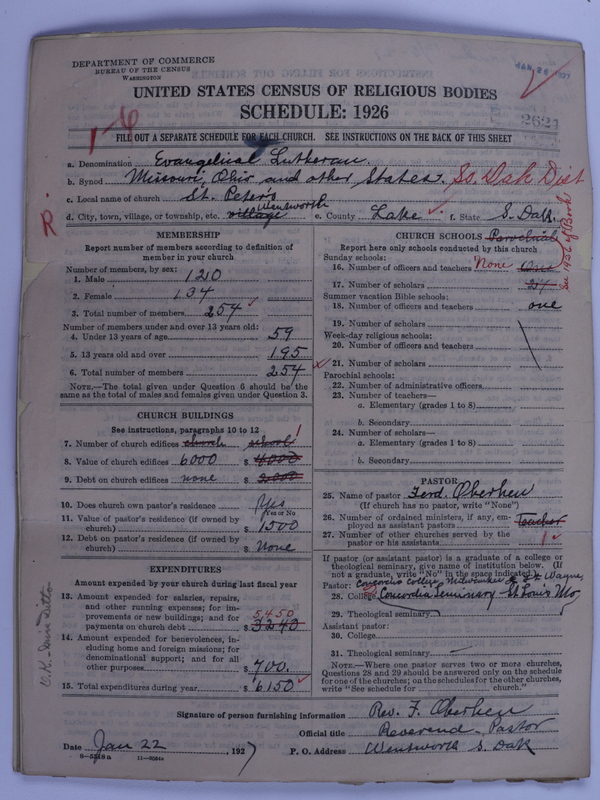 DEPARTMENT OF COMMERCE
BUREAU OF THE CENSUS
WASHINGTON
UNITED STATES CENSUS OF RELIGIOUS BODIES
SCHEDULE: 1926
2621
1-6
FILL OUT A SEPARATE SCHEDULE FOR EACH CHURCH. SEE INSTRUCTIONS ON THE BACK OF THIS SHEET
a. Denomination Evangelical Lutheran.
b. Synod Missouri, Ohio and other States. So. Dak Dist
c. Local name of church St. Peter's
R
d. City, town, village, or township, etc. village Wentworth e. County Lake f. State S. Dak.
MEMBERSHIP
Report number of members according to definition of member in your church
Number of members, by sex:
1. Male 120
2. Female 134
3. Total number of members 254
Number of members under and over 13 years old:
4. Under 13 years of age 59
5. 13 years old and over 195
6. Total number of members 254
NOTE.—The total given under Question 6 should be the same as the total of males and females given under Question 3.
CHURCH BUILDINGS
See instructions, paragraphs 10 to 12
7. Number of church edifices church school 1
8. Value of church edifices 6000 $
9. Debt on church edifices none $
10. Does church own pastor's residence Yes
Yes or No
11. Value of pastor's residence (if owned by church) $ 1500
12. Debt on pastor's residence (if owned by church) $ None
EXPENDITURES
Amount expended by your church during last fiscal year
13. Amount expended for salaries, repairs, and other running expenses; for improvements or new buildings; and for payments on church debt $ 5,450 3240
14. Amount expended for benevolences, including home and foreign missions; for denominational support; and for all other purposes $ 700.
15. Total expenditures during year $ 6,150
CHURCH SCHOOLS Parochial
Report here only schools conducted by this church
See 1936 of Book
Sunday schools:
16. Number of officers and teachers None One
17. Number of scholars 21
Summer vacation Bible schools:
18. Number of officers and teachers one
19. Number of scholars
Week-day religious schools:
20. Number of officers and teachers
21. Number of scholars
Parochial schools:
22. Number of administrative officers
23. Number of teachers—
a. Elementary (grades 1 to 8)
b. Secondary
24. Number of scholars—
a. Elementary (grades 1 to 8)
b. Secondary
PASTOR
25. Name of pastor Ferd. Oberheu
(If church has no pastor, write "None")
26. Number of ordained ministers, if any, employed as assistant pastors Teacher
27. Number of other churches served by the pastor or his assistants 1
If pastor (or assistant pastor) is a graduate of a college or theological seminary, give name of institution below. (If not a graduate, write "No" in the space indicated.)
Pastor: Concordia College, Milwaukee & Ft Wayne,
28. College Concordia Seminary - St Louis Mo,
29. Theological seminary
Assistant pastor:
30. College
31. Theological seminary
NOTE.—Where one pastor serves two or more churches, Questions 28 and 29 should be answered only on the schedule for one of the churches; on the schedules for the other churches, write "See schedule for church."
Signature of person furnishing information Rev. F. Oberheu
Official title Reverend - Pastor
Date Jan 22, 1927 P. O. Address Wentworth S. Dak
8-5518a 11-9384a